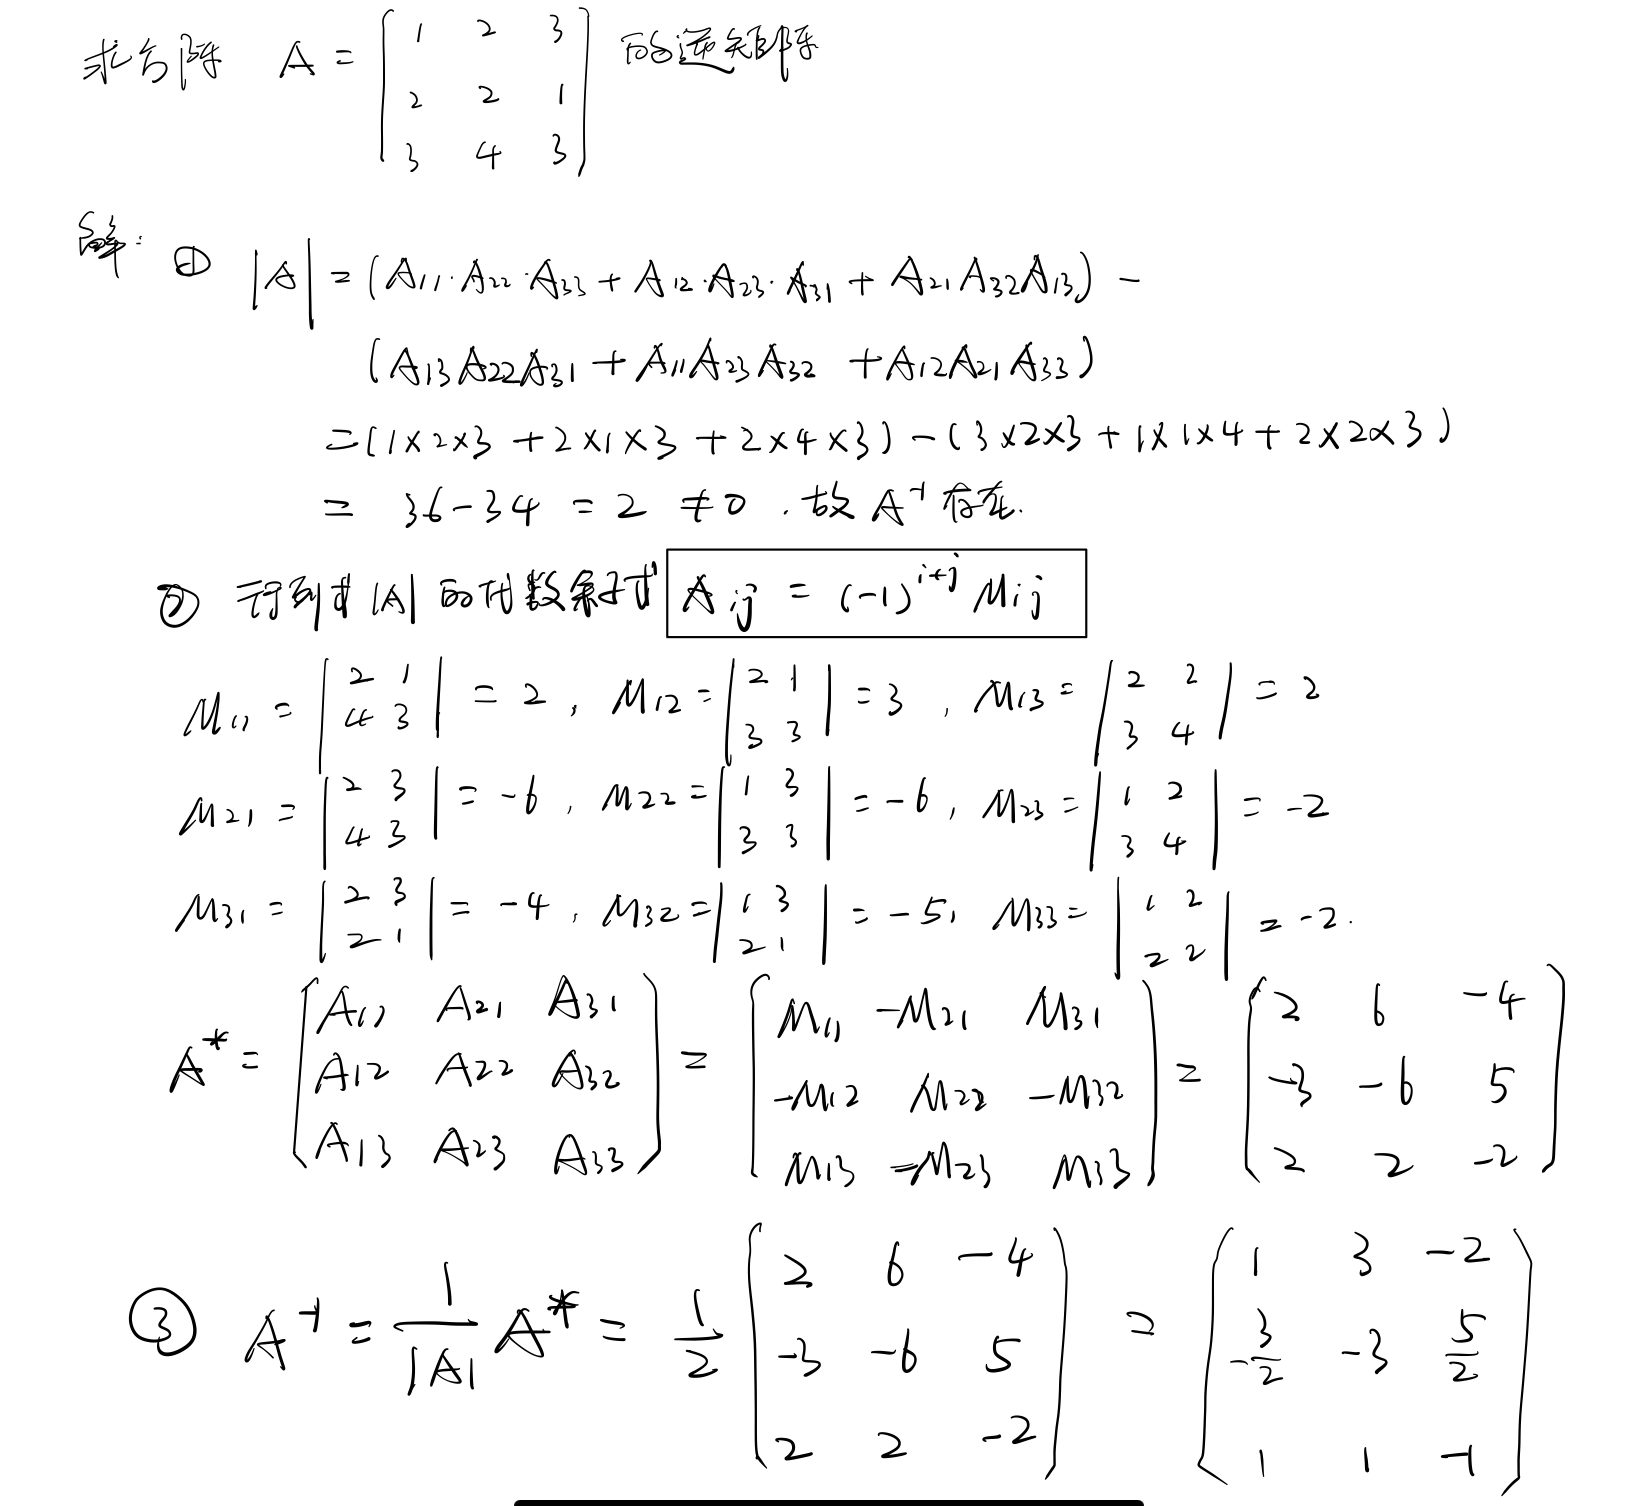 求方阵 A = [1 2 3; 2 2 1; 3 4 3] 的逆矩阵
解: ① |A| = (A11·A22·A33 + A12·A23·A31 + A21A32A13) −
(A13A22A31 + A11A23A32 + A12A21A33)
=(1×2×3 + 2×1×3 + 2×4×3) −(3×2×3 + 1×1×4 + 2×2×3)
= 36−34 = 2 ≠0 . 故 A⁻¹ 存在.
② 行列式 |A| 的代数余子式 Aij = (−1)^{i+j} Mij
M11 = |2 1; 4 3| = 2 , M12 = |2 1; 3 3| = 3 , M13 = |2 2; 3 4| = 2
M21 = |2 3; 4 3| = −6 , M22 = |1 3; 3 3| = −6 , M23 = |1 2; 3 4| = −2
M31 = |2 3; 2 1| = −4 , M32 = |1 3; 2 1| = −5 , M33 = |1 2; 2 2| = −2.
A* = [A11 A21 A31; A12 A22 A32; A13 A23 A33] = [M11 −M21 M31; −M12 M22 −M32; M13 −M23 M33] = [2 6 −4; −3 −6 5; 2 2 −2]
③ A⁻¹ = 1/|A| A* = 1/2 [2 6 −4; −3 −6 5; 2 2 −2] = [1 3 −2; −3/2 −3 5/2; 1 1 −1]